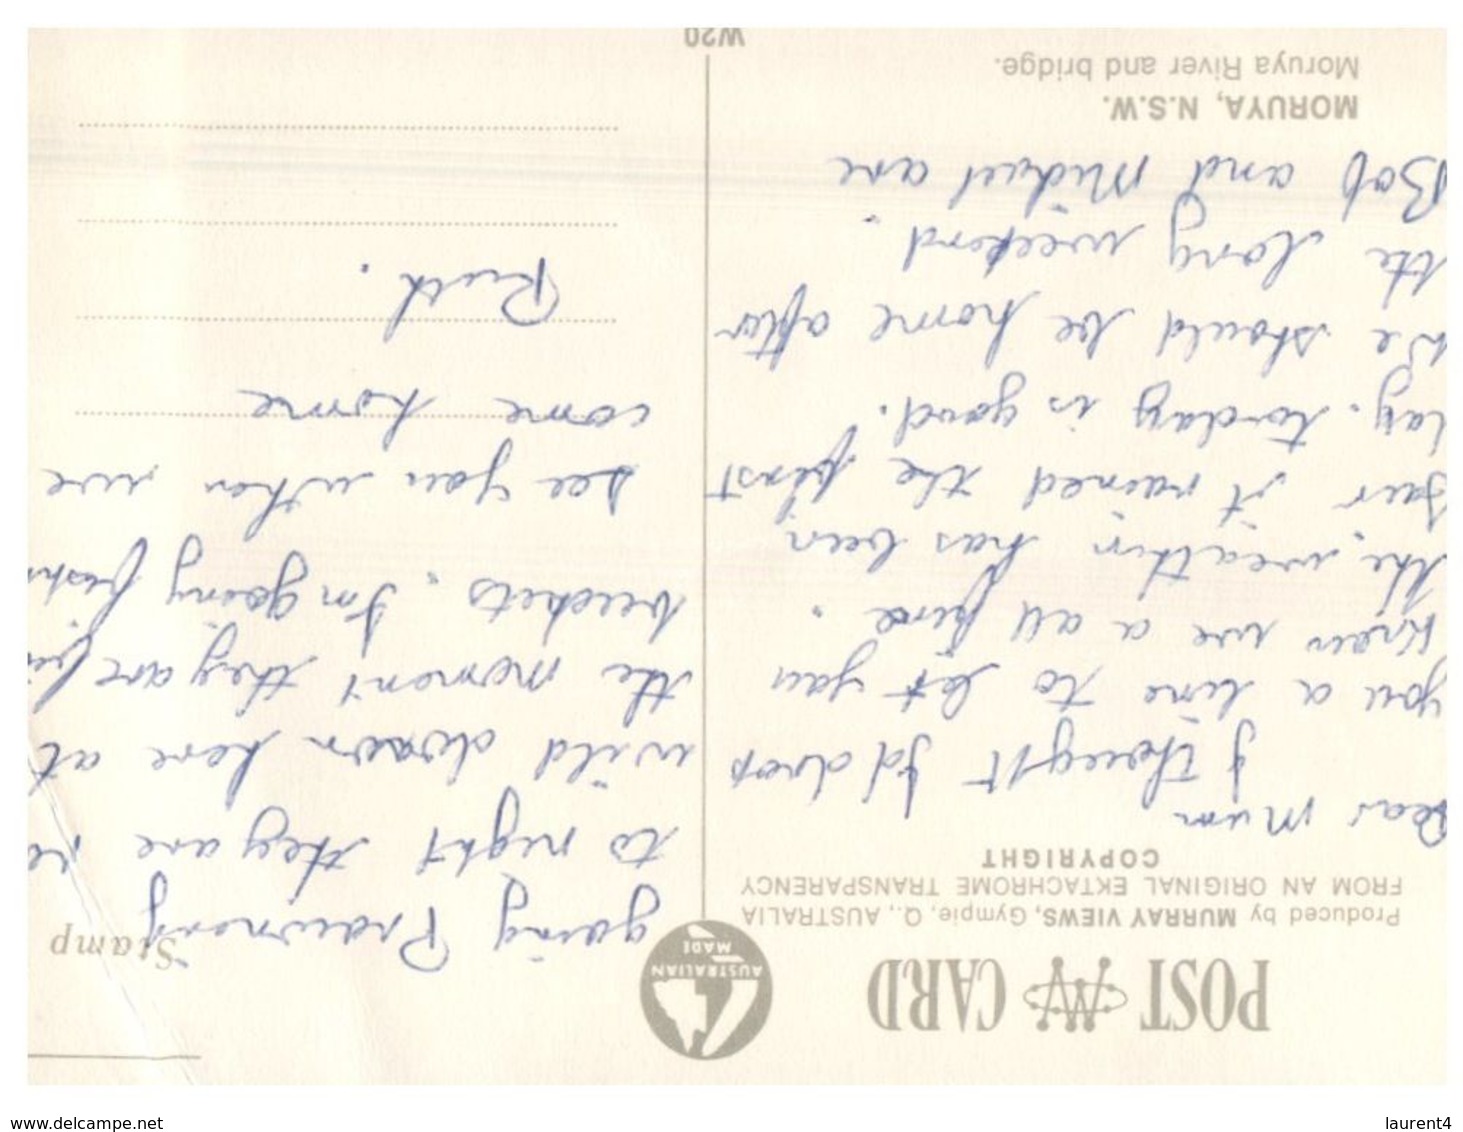 POST CARD
AUSTRALIAN
MADE
Produced by MURRAY VIEWS, Gympie, Q., AUSTRALIA
FROM AN ORIGINAL EKTACHROME TRANSPARENCY
COPYRIGHT
Dear Mum
I thought I'd drop
you a line to let you
know we a all fine.
the weather has been
it rained the first
day. to day is good.
We should be home after
the long weekend.
Bob and Michael are
MORUYA, N.S.W.
Moruya River and bridge.
W20
Stamp
going Prawning
to night they are
wild down here at
the moment they are
buckets. I'm going fishi
see you when we
come home
Ruth.
www.delcampe.net
laurent4